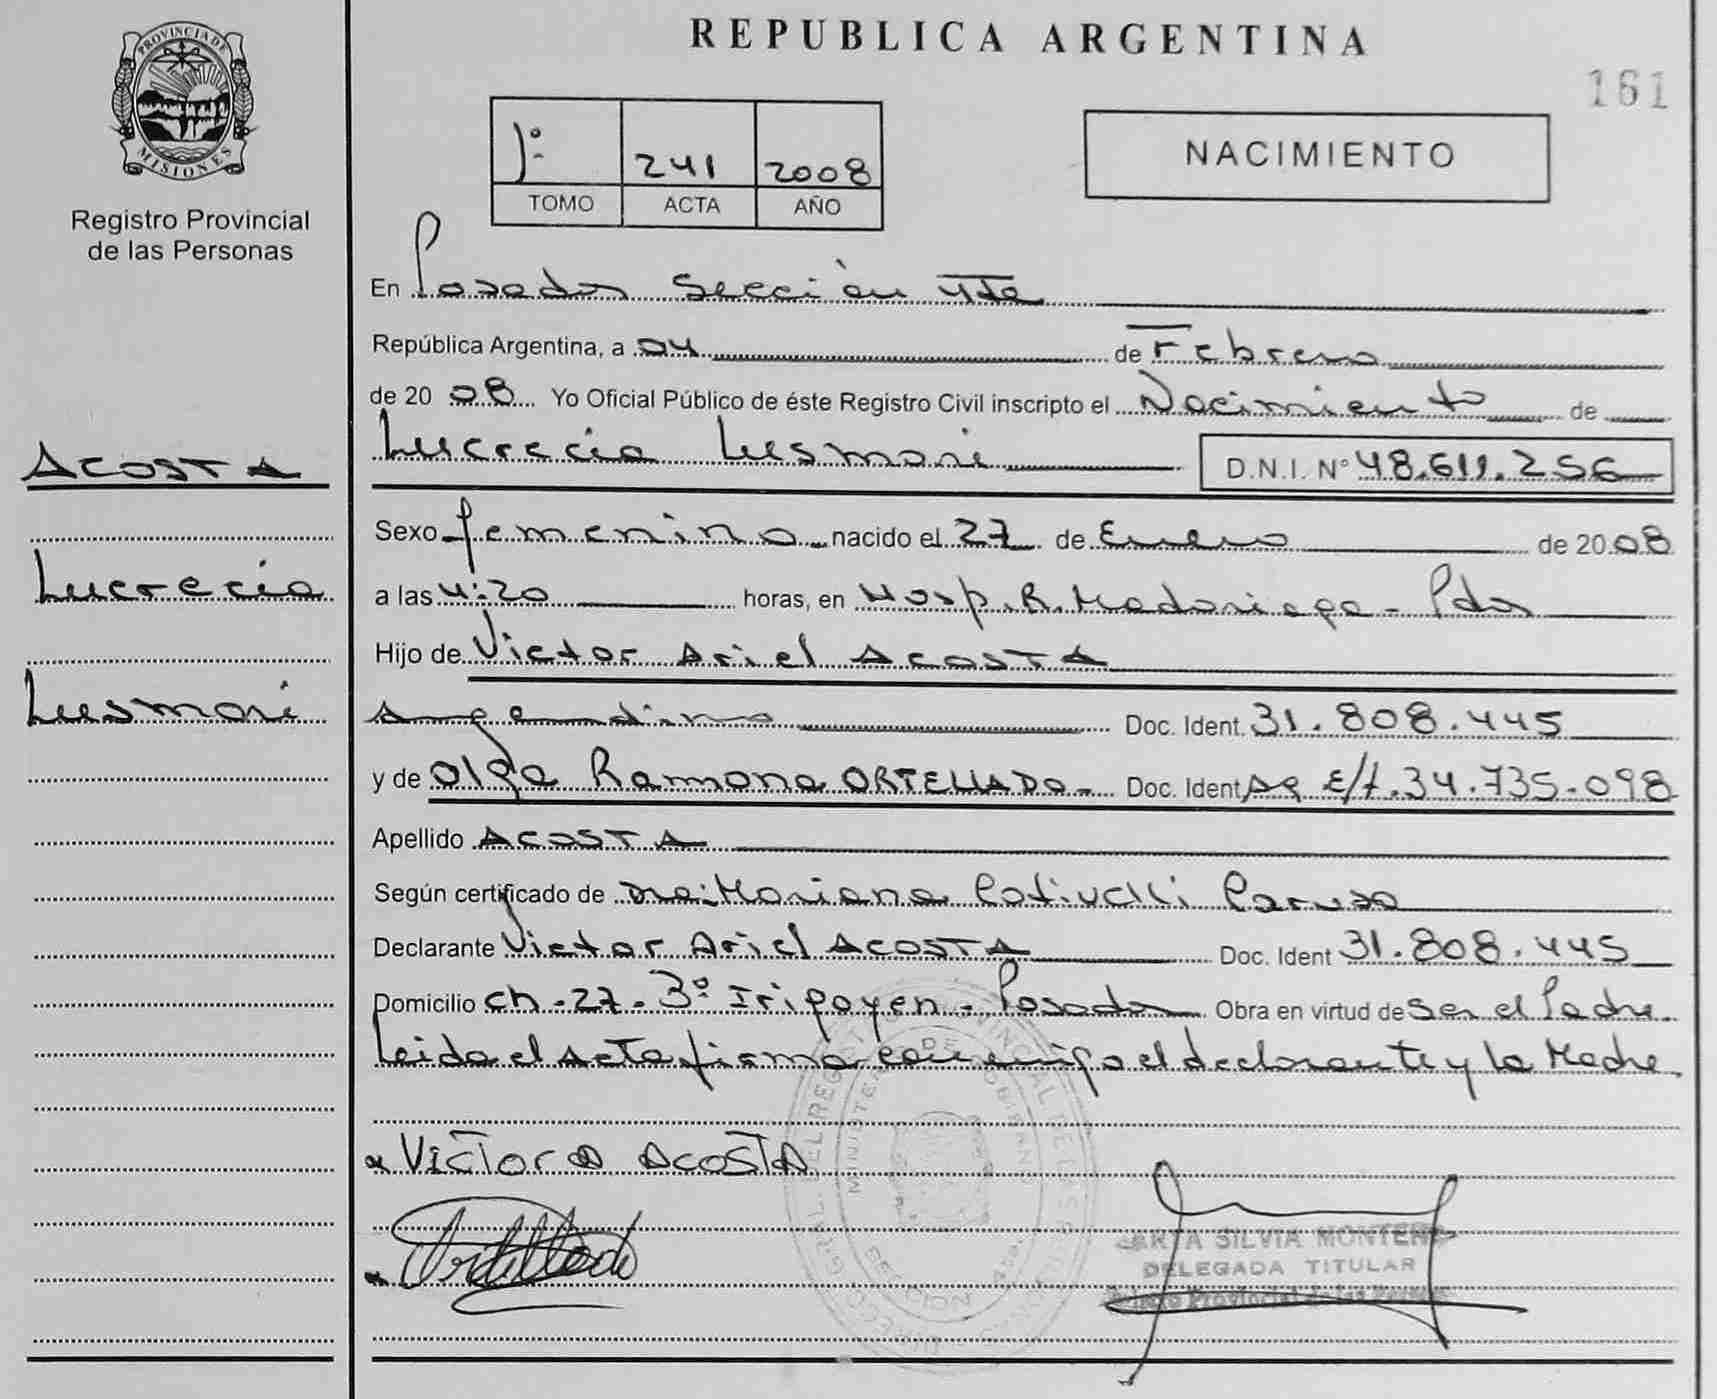 PROVINCIA DE
MISIONES
Registro Provincial
de las Personas
ACOSTA
Lucrecia
Lusmari
REPUBLICA ARGENTINA
161
1º 241 2008
TOMO ACTA AÑO
NACIMIENTO
En Posadas Sección 4ta
República Argentina, a 04 de Febrero
de 20 08 Yo Oficial Público de éste Registro Civil inscripto el Nacimiento de
Lucrecia Lusmari D.N.I. Nº 48.611.256
Sexo femenino nacido el 27 de Enero de 20 08
a las 4:20 horas, en Hosp. R. Madariaga - Pdas
Hijo de Victor Ariel ACOSTA
Argentino Doc. Ident. 31.808.445
y de Olga Ramona ORTELLADO - Doc. Ident. Arg E/t. 34.735.098
Apellido ACOSTA
Según certificado de Dra: Mariana Caruso
Declarante Victor Ariel ACOSTA Doc. Ident 31.808.445
Domicilio Ch - 27 - 3º Irigoyen - Posadas Obra en virtud de Ser el Padre.
Leida el Acta firma conmigo el declarante y la Madre.
VICTOR A ACOSTA
Ortellado
MINISTERIO DE GOBIERNO
SECCION
SILVIA MONTERO
DELEGADA TITULAR
Provincial de las Personas